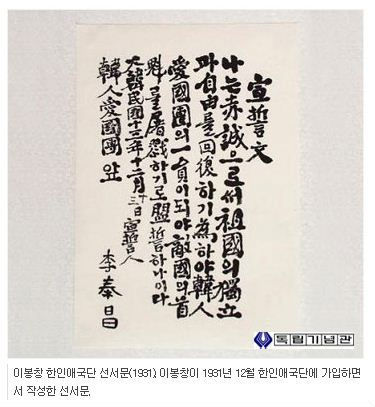 宣誓文
나는赤誠으로써祖國의獨立
과自由를回復하기爲하야韓人
愛國團의一員이되야敵國의首
魁를屠戮하기로盟誓하나이다
大韓民國十三年十二月十三日 宣誓人
韓人愛國團 앞
李奉昌
독립기념관
이봉창 한인애국단 선서문(1931). 이봉창이 1931년 12월 한인애국단에 가입하면
서 작성한 선서문.